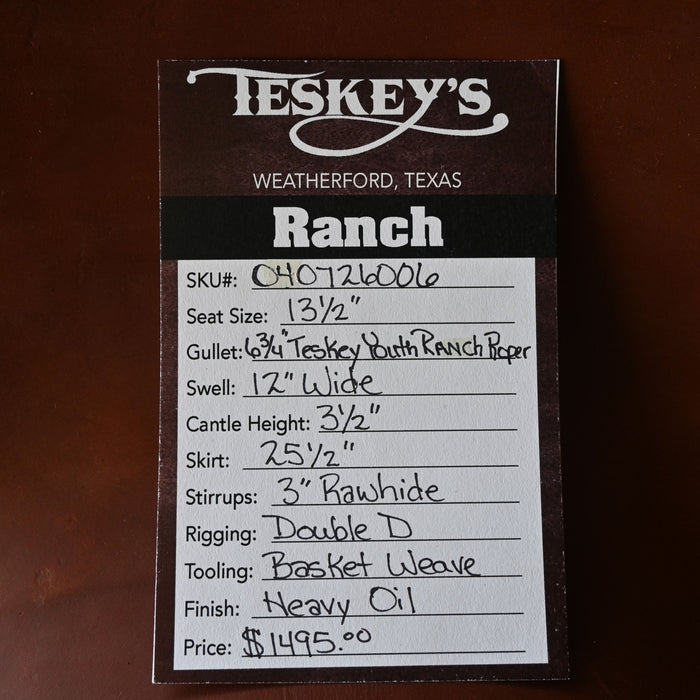 TESKEY'S
WEATHERFORD, TEXAS
Ranch
SKU#: 040726006
Seat Size: 13 1/2"
Gullet: 6 3/4" Teskey Youth RANCh Roper
Swell: 12" Wide
Cantle Height: 3 1/2"
Skirt: 25 1/2"
Stirrups: 3" Rawhide
Rigging: Double D
Tooling: Basket Weave
Finish: Heavy Oil
Price: $1495.00